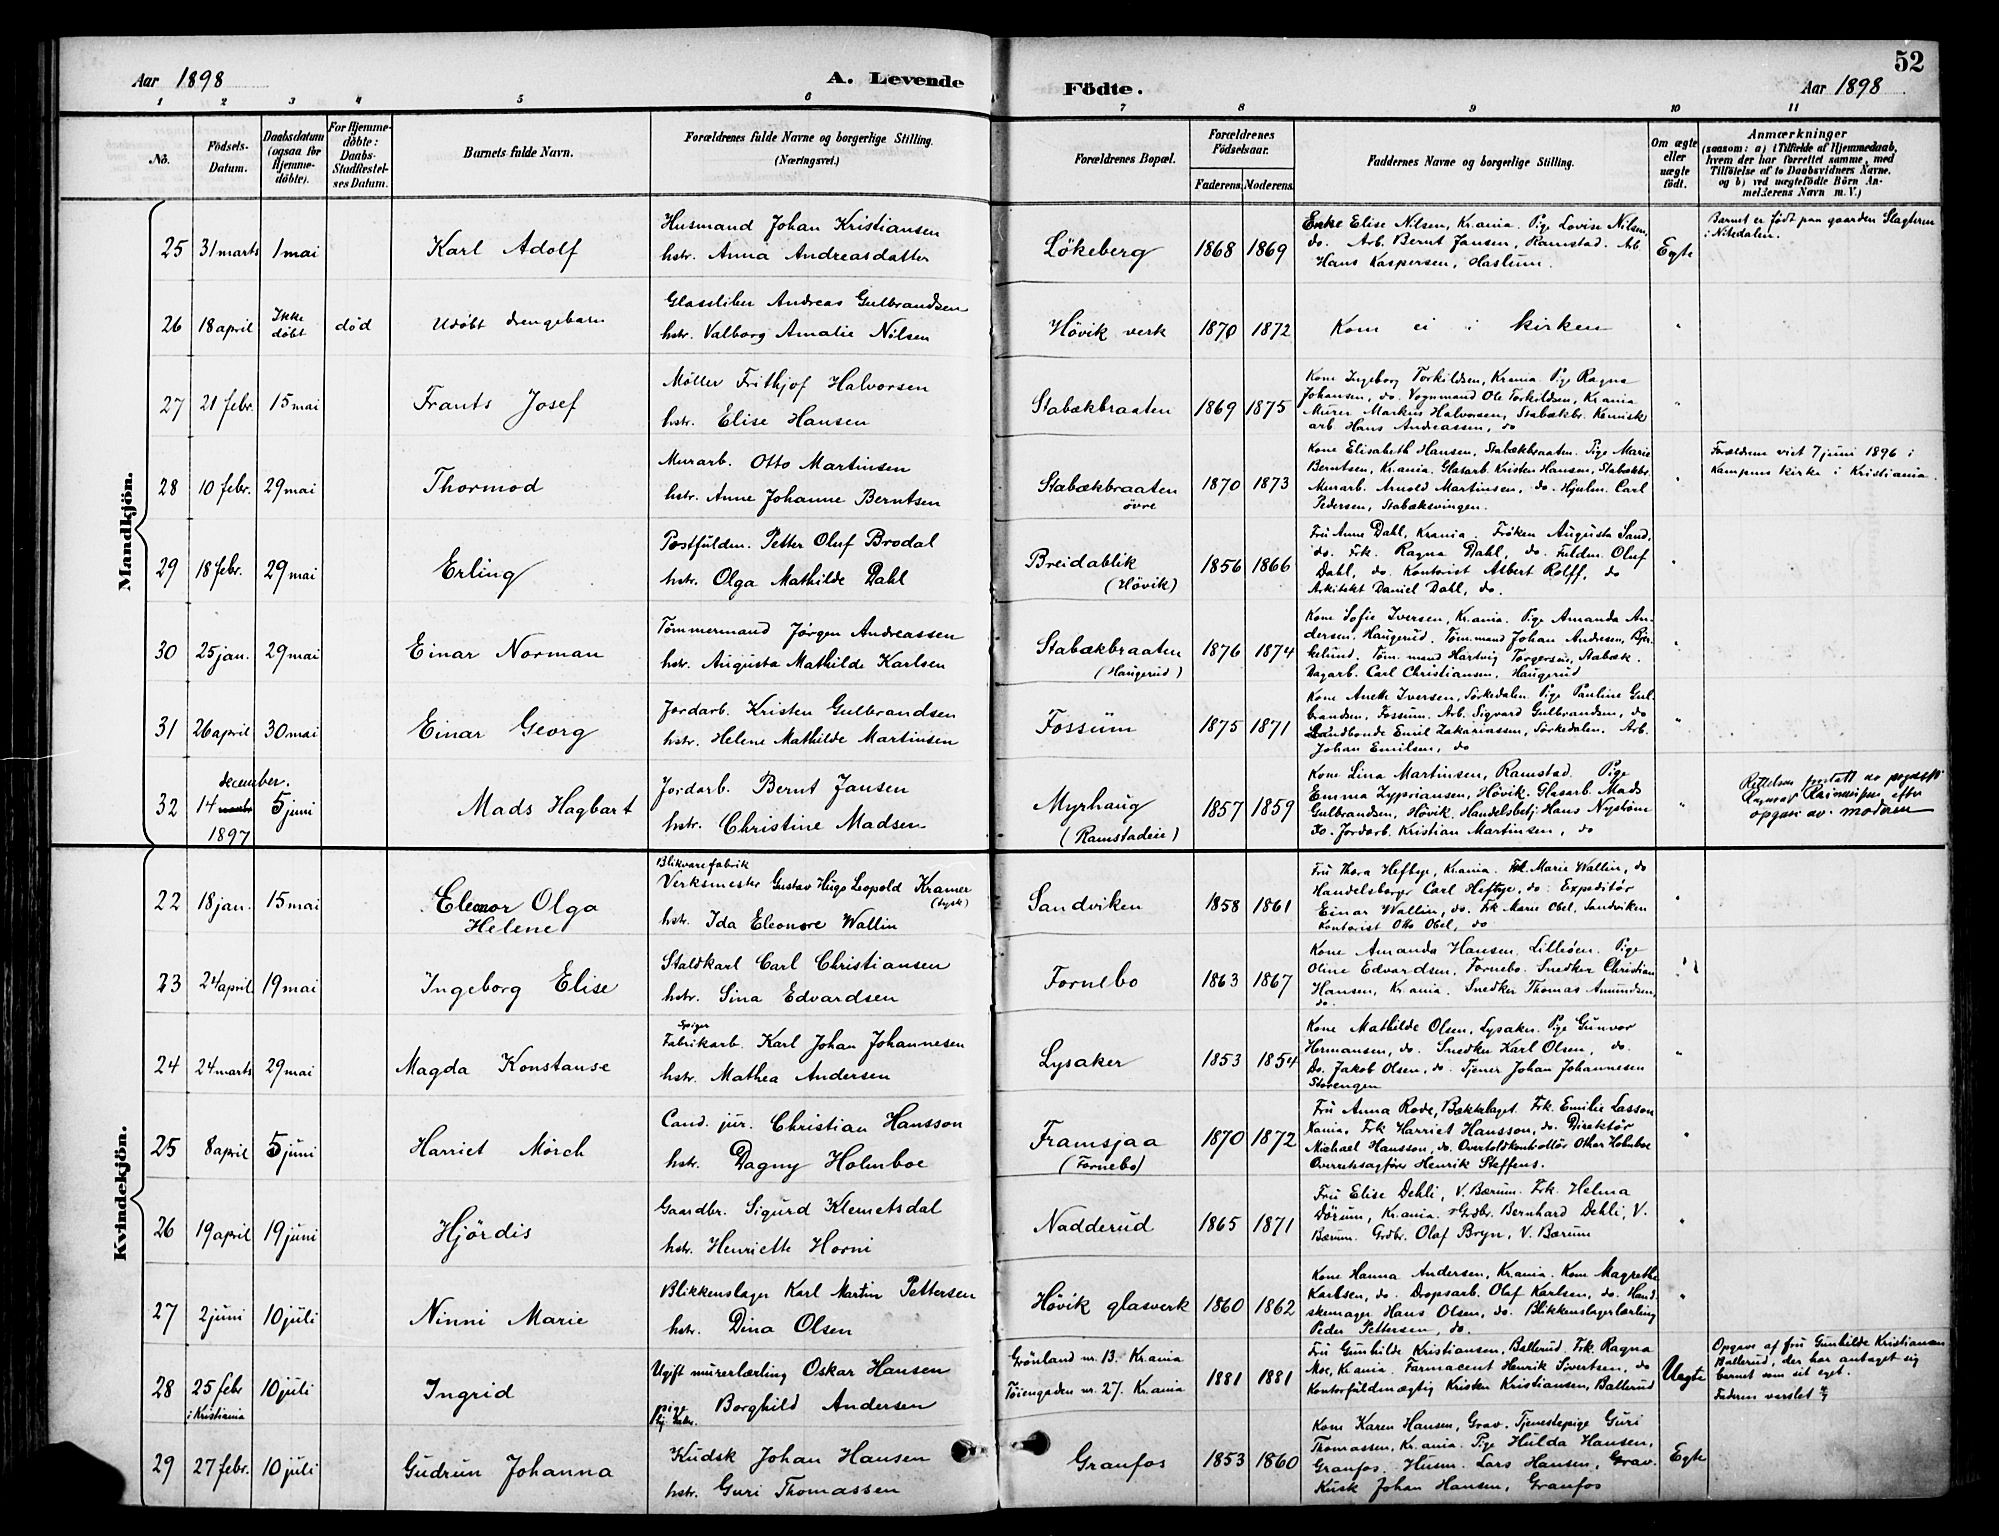 52
Aar 1898
A. Levende
Fødte.
Aar 1898
1 2 3 4 5 6 7 8 9 10 11
No.
Fødsels-Datum.
Daabsdatum (ogsaa for Hjemme-døbte).
For Hjemme-døbte: Daabs-Stadfæstel-ses Datum.
Barnets fulde Navn.
Forældrenes fulde Navne og borgerlige Stilling. (Næringsvei.)
Forældrenes Bopæl.
Forældrenes Fødselsaar.
Faderens.
Moderens.
Faddernes Navne og borgerlige Stilling.
Om ægte eller uægte født.
Anmærkninger
(saasom: a) i Tilfælde af Hjemmedaab, hvem der har forrettet samme, med Tilføielse af to Daabsvidners Navne, og b) ved uægtefødte Børn An-melderens Navn m. V.)
Mandkjøn.
25 31 marts 1 mai Karl Adolf
Husmand Johan Kristiansen
hstr. Anna Andreasdatter
Løkeberg 1868 1869
Enke Elise Nilsen, Kr.ania. Pige Lovise Nilsen,
do. Arb. Bernt Jansen, Ramstad. Arb.
Hans Kaspersen, Haslum.
Egte
Barnet er født paa gaarden Slagteren
i Nitedalen.
26 18 april Ikke døbt død Udøbt drengebarn
Glassliber Andreas Gulbrandsen
hstr. Valborg Amalie Nilsen
Høvik verk 1870 1872
Kom ei i kirken
"
27 21 febr. 15 mai Frants Josef
Møller Frithjof Halvorsen
hstr. Elise Hansen
Stabækbraaten 1869 1875
Kone Ingeborg Torkildsen, Kr.ania. Pige Ragna
Johansen, do. Vognmand Ole Torkildsen, Kr.ania
Murer Markus Halvorsen, Stabækbr. Kemisk
arb. Hans Andreassen, do
"
28 10 febr. 29 mai Thormod
Murarb. Otto Martinsen
hstr. Anne Johanne Berntsen
Stabækbraaten øvre 1870 1873
Kone Elisabeth Hansen, Stabækbraaten. Pige Marie
Berntsen, Kr.ania. Glasarb. Kristen Hansen, Stabækbr.
Murarb. Arnold Martinsen, do. Hjulm. Carl
Pedersen, Stabæksvingen.
"
Forældrene viet 7 juni 1896 i
Kampens kirke i Kristiania.
29 18 febr. 29 mai Erling
Postfuldm. Petter Oluf Brodal
hstr. Olga Mathilde Dahl
Breidablik (Høvik) 1856 1866
Fru Anne Dahl, Kr.ania. Frøken Augusta Sand,
do. Frk. Ragna Dahl, do. Fuldm. Oluf
Dahl, do. Kontorist Albert Rolff, do
Arkitekt Daniel Dahl, do.
"
30 25 jan. 29 mai Einar Norman
Tømmermand Jørgen Andreassen
hstr. Augusta Mathilde Karlsen
Stabækbraaten (Haugerud) 1876 1874
Kone Sofie Iversen, Kr.ania. Pige Amanda An-
dersen, Haugerud. Tøm.mand Johan Andresen, Bjer-
kelund. Tøm.mand Hartvig Torgersen, Stabæk.
Dagarb. Carl Christiansen, Haugerud
"
31 26 april 30 mai Einar Georg
Jordarb. Kristen Gulbrandsen
hstr. Helene Mathilde Martinsen
Fossum 1875 1871
Kone Anette Iversen, Sørkedalen. Pige Pauline Gul-
brandsen, Fossum. Arb. Sigvard Gulbrandsen, do
Landbonde Emil Zakariassen, Sørkedalen. Arb.
Johan Emilsen, do
"
december.
32 14 marts 5 juni Mads Hagbart
1897
Jordarb. Bernt Jansen
hstr. Christine Madsen
Myrhaug (Ramstadeie) 1857 1859
Kone Lina Martinsen, Ramstad. Pige
Emma Zyprianssen, Høvik. Glasarb. Mads
Gulbrandsen, Høvik. Handelsbetj. Hans Nystrøm
do. Jordarb. Kristian Martinsen, do
"
opgave av moderen
Kvindekjøn.
22 18 jan. 15 mai Eleonor Olga Helene
Blikvarefabrik
Verksmester Gustav Hugo Leopold Kramer (tysk)
hstr. Ida Eleonore Wallin
Sandviken 1858 1861
Fru Thora Heftye, Kr.ania. Frk. Marie Wallin, do
Handelsborger Carl Heftye, do. Expeditør
Einar Wallin, do. Frk Marie Obel, Sandviken
Kontorist Otto Obel, do
"
23 24 april 19 mai Ingeborg Elise
Staldkarl Carl Christiansen
hstr. Sina Edvardsen
Fornebo 1863 1867
Kone Amanda Hansen, Lilleøen. Pige
Oline Edvardsen, Fornebo. Snedker Christian
Hansen, Kr.ania. Snedker Thomas Amundsen,
do.
"
24 24 marts 29 mai Magda Konstanse
Spiger
Fabrikarb. Karl Johan Johannesen
hstr. Mathea Andersen
Lysaker 1853 1854
Kone Mathilde Olsen, Lysaker. Pige Gunvor
Hermansen, do. Snedker Karl Olsen, do.
Do. Jakob Olsen, do. Tjener Johan Johannesen
Storengen
"
25 8 april 5 juni Harriet Mørch
Cand. jur. Christian Hansson
hstr. Dagny Holmboe
Framsjaa (Fornebo) 1870 1872
Fru Anna Rode, Bækkelaget. Frk. Emilie Lasson
Kania. Frk Harriet Hansson, do. Direktør
Michael Hansson, do. Overtoldkontrollør Othar Holmboe
Overretssagfører Henrik Steffens.
"
26 19 april 19 juni Hjørdis
Gaardbr. Sigurd Klemetsdal
hstr. Henriette Horni
Nadderud 1865 1871
Fru Elise Dehli, V. Bærum. Frk. Helma
Dørum, Kr.ania. Grdbr. Bernhard Dehli, V.
Bærum. Grdbr. Olaf Bryn, V. Bærum
"
27 2 juni 10 juli Ninni Marie
Blikkenslager Karl Martin Pettersen
hstr. Dina Olsen
Høvik glasverk 1860 1862
Kone Hanna Andersen, Kr.ania. Kone Magrethe
Karlsen, do. Dropsarb. Olaf Karlsen, do. Hand-
skemager Hans Olsen, do. Blikkenslagerlærling
Peder Pettersen, do.
"
28 25 febr i Kristiania 10 juli Ingrid
Ugift murerlærling Oskar Hansen
pige Borghild Andersen
Grønland nr. 13. Kr.ania
Tøiengaden nr. 27. Kr.ania
1881 1881
Fru Gunhilde Kristiansen, Ballerud. Frk. Ragna
Moe, Kr.ania. Farmacent Henrik Sivertsen, do
Kontorfuldmægtig Kristen Kristiansen, Ballerud
Uegte
Opgave af fru Gunhilde Kristiansen
Ballerud, der har antaget sig
barnet som sit eget.
Faderen varslet
29 27 febr. 10 juli Gudrun Johanna
Kudsk Johan Hansen
hstr. Guri Thomassen
Granfos 1853 1860
Kone Karen Hansen, Grav. Tjenestepige Guri
Thomassen, Kr.ania. Pige Hulda Hansen,
Granfos. Husm. Lars Hansen, Grav.
Kusk Johan Hansen, Granfos
Egte